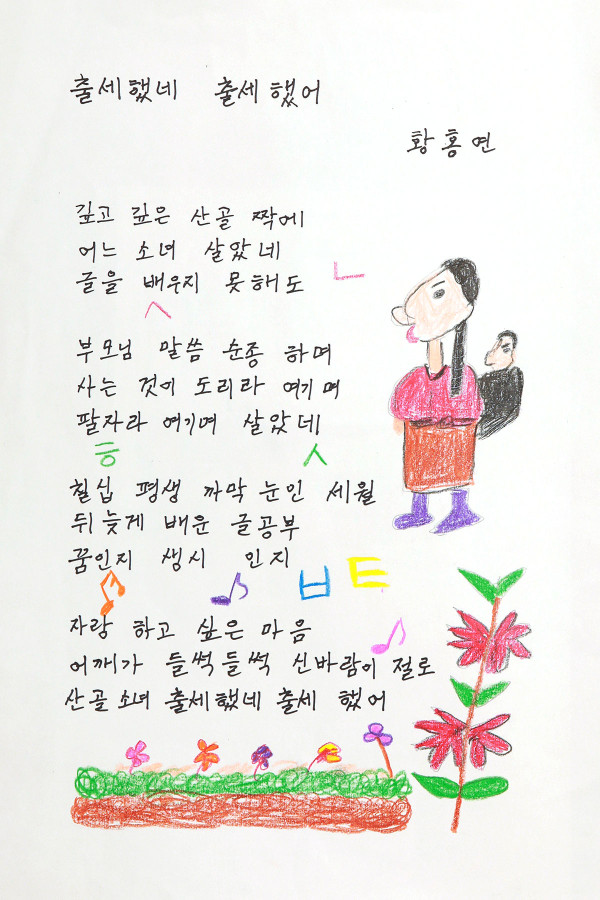 출세했네 출세했어
황홍연
깊고 깊은 산골 짝에
어느 소녀 살았네
글을 배우지 못해도
ㄴ
ㅅ
부모님 말씀 순종 하며
사는 것이 도리라 여기며
팔자라 여기며 살았네
ㅎ ㅅ
칠십 평생 까막눈인 세월
뒤늦게 배운 글공부
꿈인지 생시 인지
ㅂ ㅌ
자랑 하고 싶은 마음
어깨가 들썩들썩 신바람이 절로
산골소녀 출세했네 출세 했어